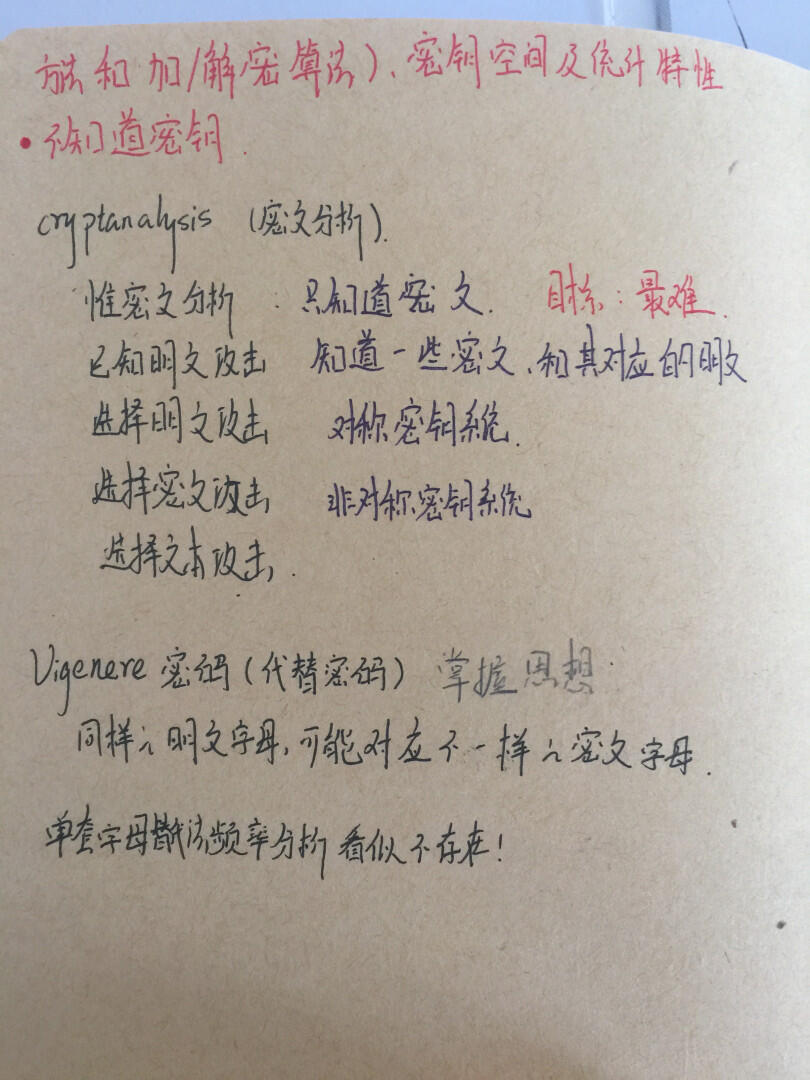 方法和加/解密算法)、密钥空间及统计特性
• 不知道密钥.
cryptanalysis (密文分析).
惟密文分析 : 只知道密文. 目标: 最难.
已知明文攻击 知道一些密文、和其对应的明文
选择明文攻击 对称密钥系统.
选择密文攻击 非对称密钥系统
选择文本攻击.
Vigenere 密码(代替密码) 掌握思想.
同样的明文字母,可能对应不一样的密文字母.
单套字母替代法频率分析 看似不存在!